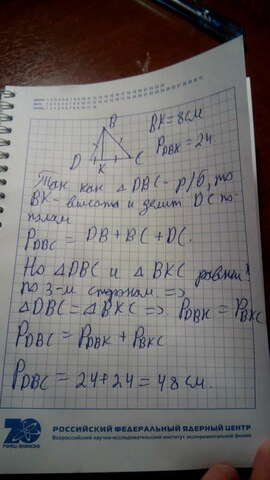 B
D
K
C
BK=8см
P_DBK = 24.
Так как △DBC - р/б, то
BK - высота и делит DC по-
полам
P_DBC = DB + BC + DC.
Но △DBC и △BKC равны
по 3-м сторонам =>
△DBC = △BKC => P_DBK = P_BKC
P_DBC = P_DBK + P_BKC
P_DBC = 24 + 24 = 48 см.
РОССИЙСКИЙ ФЕДЕРАЛЬНЫЙ ЯДЕРНЫЙ ЦЕНТР
Всероссийский научно-исследовательский институт экспериментальной физики